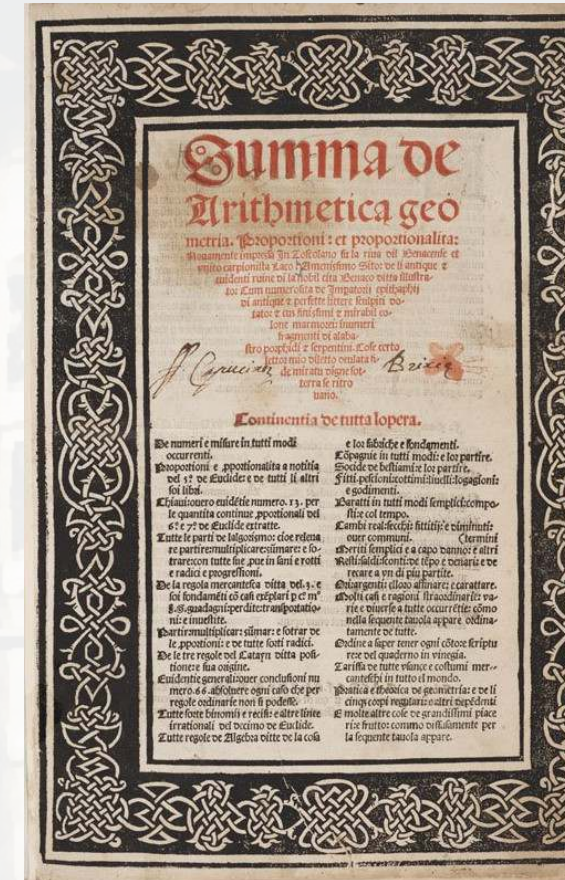 Summa de
Arithmetica geo
metria. Proportioni: et proportionalita:
Nouamente impressa In Toscolano su la riua dil Benacense et
vnico carpionista Laco: Amenissimo Sito: de li antique &
euidenti ruine di la nobil cita Benaco ditta illustra-
to: Cum numerosita de Imperatorii epithaphij
di antique & perfette littere sculpiti do-
tato: & cum finissimi & mirabil co-
lone marmorei: inumeri
fragmenti di alaba-
stro porphidi & serpentini. Cose certo
lettor mio diletto oculata fi-
de miratu digne sot-
terra se ritro
uano.
Brixia
Continentia de tutta lopera.
De numeri e misure in tutti modi
occurrenti.
Proportioni e ꝓportionalita a notitia
del 5º de Euclide: e de tutti li altri
soi libri.
Chiaui: ouero euidētie numero. 13. per
le quantita continue ꝓportionali del
6º e 7º de Euclide extratte.
Tutte le parti de lalgorismo: cioe releua
re partire: multiplicare: sūmare: e so-
trare: con tutte sue ꝓue in sani e rotti
e radici e progressioni.
De la regola mercantesca ditta del .3. e
soi fondamēti cō casi exēplari ꝑ cº mº
guadagni: perdite: transportatio-
ni: e inuestite.
Partir: multiplicar: sūmar: e sotrar de
le ꝓportioni: e de tutte sorti radici.
De le tre regole del Catayn ditta posi-
tione: e sua origine.
Euidentie generali: ouer conclusioni nu
mero .66. absoluere ogni caso che per
regole ordinarie non si podesse.
Tutte sorte binomii e recisi: e altre linee
irrationali del decimo de Euclide.
Tutte regole de Algebra ditte de la cosa
e lor fabriche e fondamenti.
Cōpagnie in tutti modi: e lor partire.
Socide de bestiami: e lor partire.
Fitti: pescioni: cottimi: liuelli: logagioni:
e godimenti.
Baratti in tutti modi semplici: compo-
sti: e col tempo.
Cambi reali: secchi: fittitij: e diminuti:
ouer communi. (termini
Meriti semplici e a capo danno: e altri
Resti: saldi: sconti: de tēpo e denari: e de
recare a vn di piu partite.
Ori: argenti: e lloro affinare: e carattare.
Molti casi e ragioni straordinarie: va-
rie e diuerse a tutte occurrētie: cōmo
nella sequente tauola appare ordina-
tamente de tutte.
Ordine a saper tener ogni cōto e scriptu
re: e del quaderno in vinegia.
Tariffa de tutte vsançe e costumi mer-
canteschi in tutto el mondo.
Pratica e theorica de geometria: e de li
cinqꝫ corpi regulari: e altri depēdenti
E molte altre cose de grandissimi piace
ri: e frutto: commo diffusamente per
la sequente tauola appare.